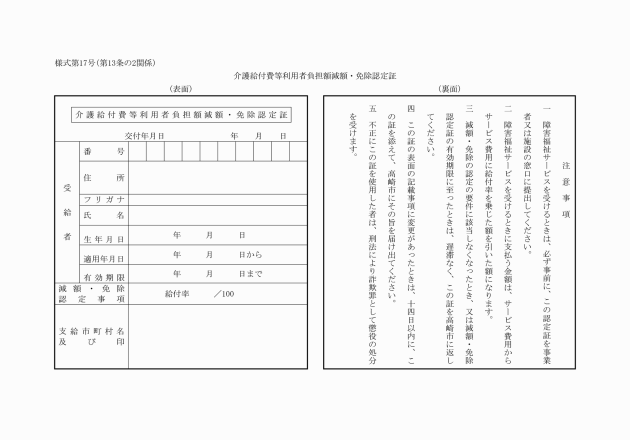 様式第17号(第13条の2関係)
介護給付費等利用者負担額減額・免除認定証
(表面)
介護給付費等利用者負担額減額・免除認定証
交付年月日　年　月　日
受給者
番号
住所
フリガナ
氏名
生年月日　年　月　日
適用年月日　年　月　日から
有効期限　年　月　日まで
減額・免除
認定事項
給付率　／100
支給市町村名
及び印
(裏面)
注意事項
一　障害福祉サービスを受けるときは、必ず事前に、この認定証を事業
者又は施設の窓口に提出してください。
二　障害福祉サービスを受けるときに支払う金額は、サービス費用から
サービス費用に給付率を乗じた額を引いた額になります。
三　減額・免除の認定の要件に該当しなくなったとき、又は減額・免除
認定証の有効期限に至ったときは、遅滞なく、この証を高崎市に返し
てください。
四　この証の表面の記載事項に変更があったときは、十四日以内に、こ
の証を添えて、高崎市にその旨を届け出てください。
五　不正にこの証を使用した者は、刑法により詐欺罪として懲役の処分
を受けます。